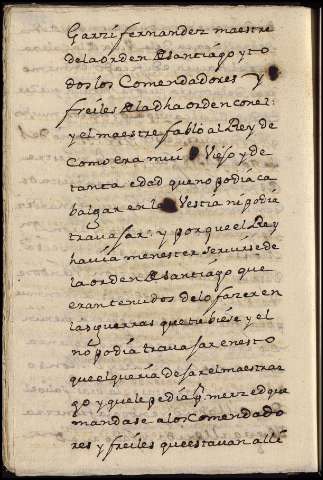 Garzi fernandez maestre
dela orden de santiago y to
dos los Comendadores y
freiles de la dha orden con el:
y el maestre fablo al Rey de
Como era mui Viejo y de
tanta edad que no podia ca
balgar en la Vestia ni podia
travasar: y por que el Rey
havia menester servirse de
la orden de santiago que
eran tenidos de lo fazer en
las guerras que tubiese y el
no podia travasar en esto
que el queria desar el maestraz
go y que le pedia p.r merzed que
mandase a los Comendado
res y freiles que estavan alli